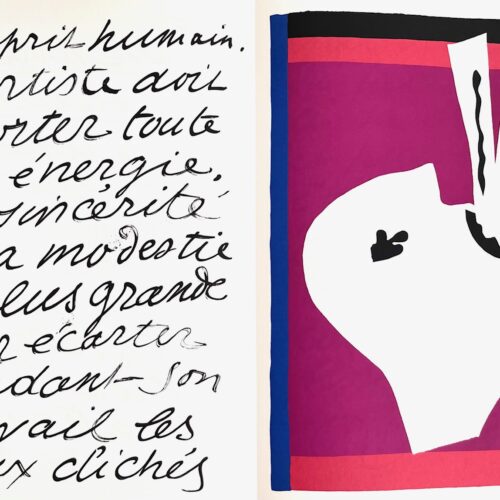 prit humain.
rtiste doit
orter toute
énergie,
sincérité
a modestie
lus grande
r écarter
dant son
vail les
ux clichés